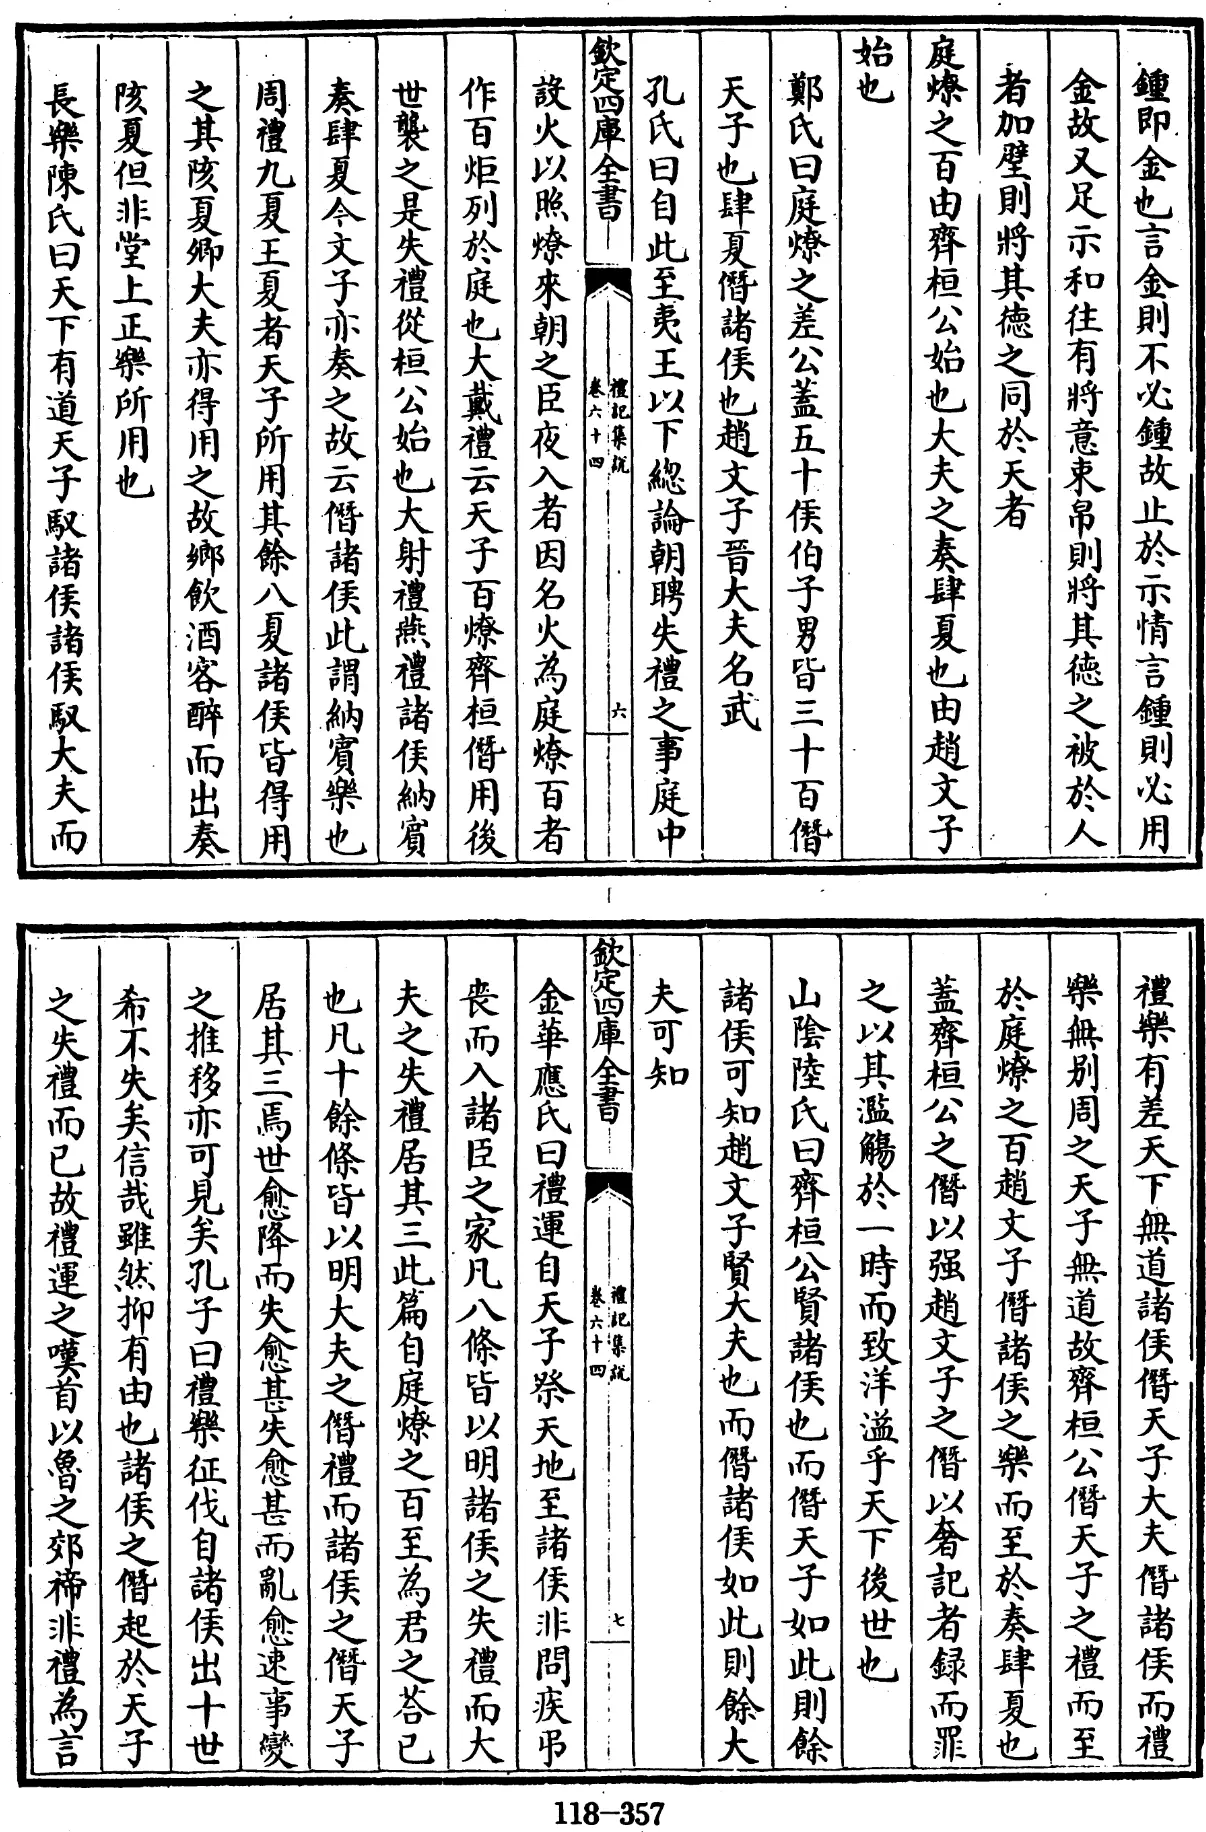 鍾即金也言金則不必鍾故止於示情言鍾則必用
金故又足示和往有將意束帛則將其徳之被於人
者加璧則將其徳之同於天者
庭燎之百由齊桓公始也大夫之奏肆夏也由趙文子
始也
鄭氏曰庭燎之差公蓋五十侯伯子男皆三十百僭
天子也肆夏僭諸侯也趙文子晉大夫名武
孔氏曰自此至夷王以下總論朝聘失禮之事庭中
欽定四庫全書
禮記集說
卷六十四
六
設火以照燎來朝之臣夜入者因名火為庭燎百者
作百炬列於庭也大戴禮云天子百燎齊桓僭用後
世襲之是失禮從桓公始也大射禮燕禮諸侯納賓
奏肆夏今文子亦奏之故云僭諸侯此謂納賓樂也
周禮九夏王夏者天子所用其餘八夏諸侯皆得用
之其陔夏卿大夫亦得用之故鄉飲酒客醉而出奏
陔夏但非堂上正樂所用也
長樂陳氏曰天下有道天子馭諸侯諸侯馭大夫而
禮樂有差天下無道諸侯僭天子大夫僭諸侯而禮
樂無别周之天子無道故齊桓公僭天子之禮而至
於庭燎之百趙文子僭諸侯之樂而至於奏肆夏也
蓋齊桓公之僭以强趙文子之僭以奢記者録而罪
之以其濫觴於一時而致洋溢乎天下後世也
山陰陸氏曰齊桓公賢諸侯也而僭天子如此則餘
諸侯可知趙文子賢大夫也而僭諸侯如此則餘大
夫可知
欽定四庫全書
禮記集說
卷六十四
七
金華應氏曰禮運自天子祭天地至諸侯非問疾弔
喪而入諸臣之家凡八條皆以明諸侯之失禮而大
夫之失禮居其三此篇自庭燎之百至為君之荅已
也凡十餘條皆以明大夫之僭禮而諸侯之僭天子
居其三焉世愈降而失愈甚失愈甚而亂愈速事變
之推移亦可見矣孔子曰禮樂征伐自諸侯出十世
希不失矣信哉雖然抑有由也諸侯之僭起於天子
之失禮而已故禮運之嘆首以魯之郊禘非禮為言
118-357